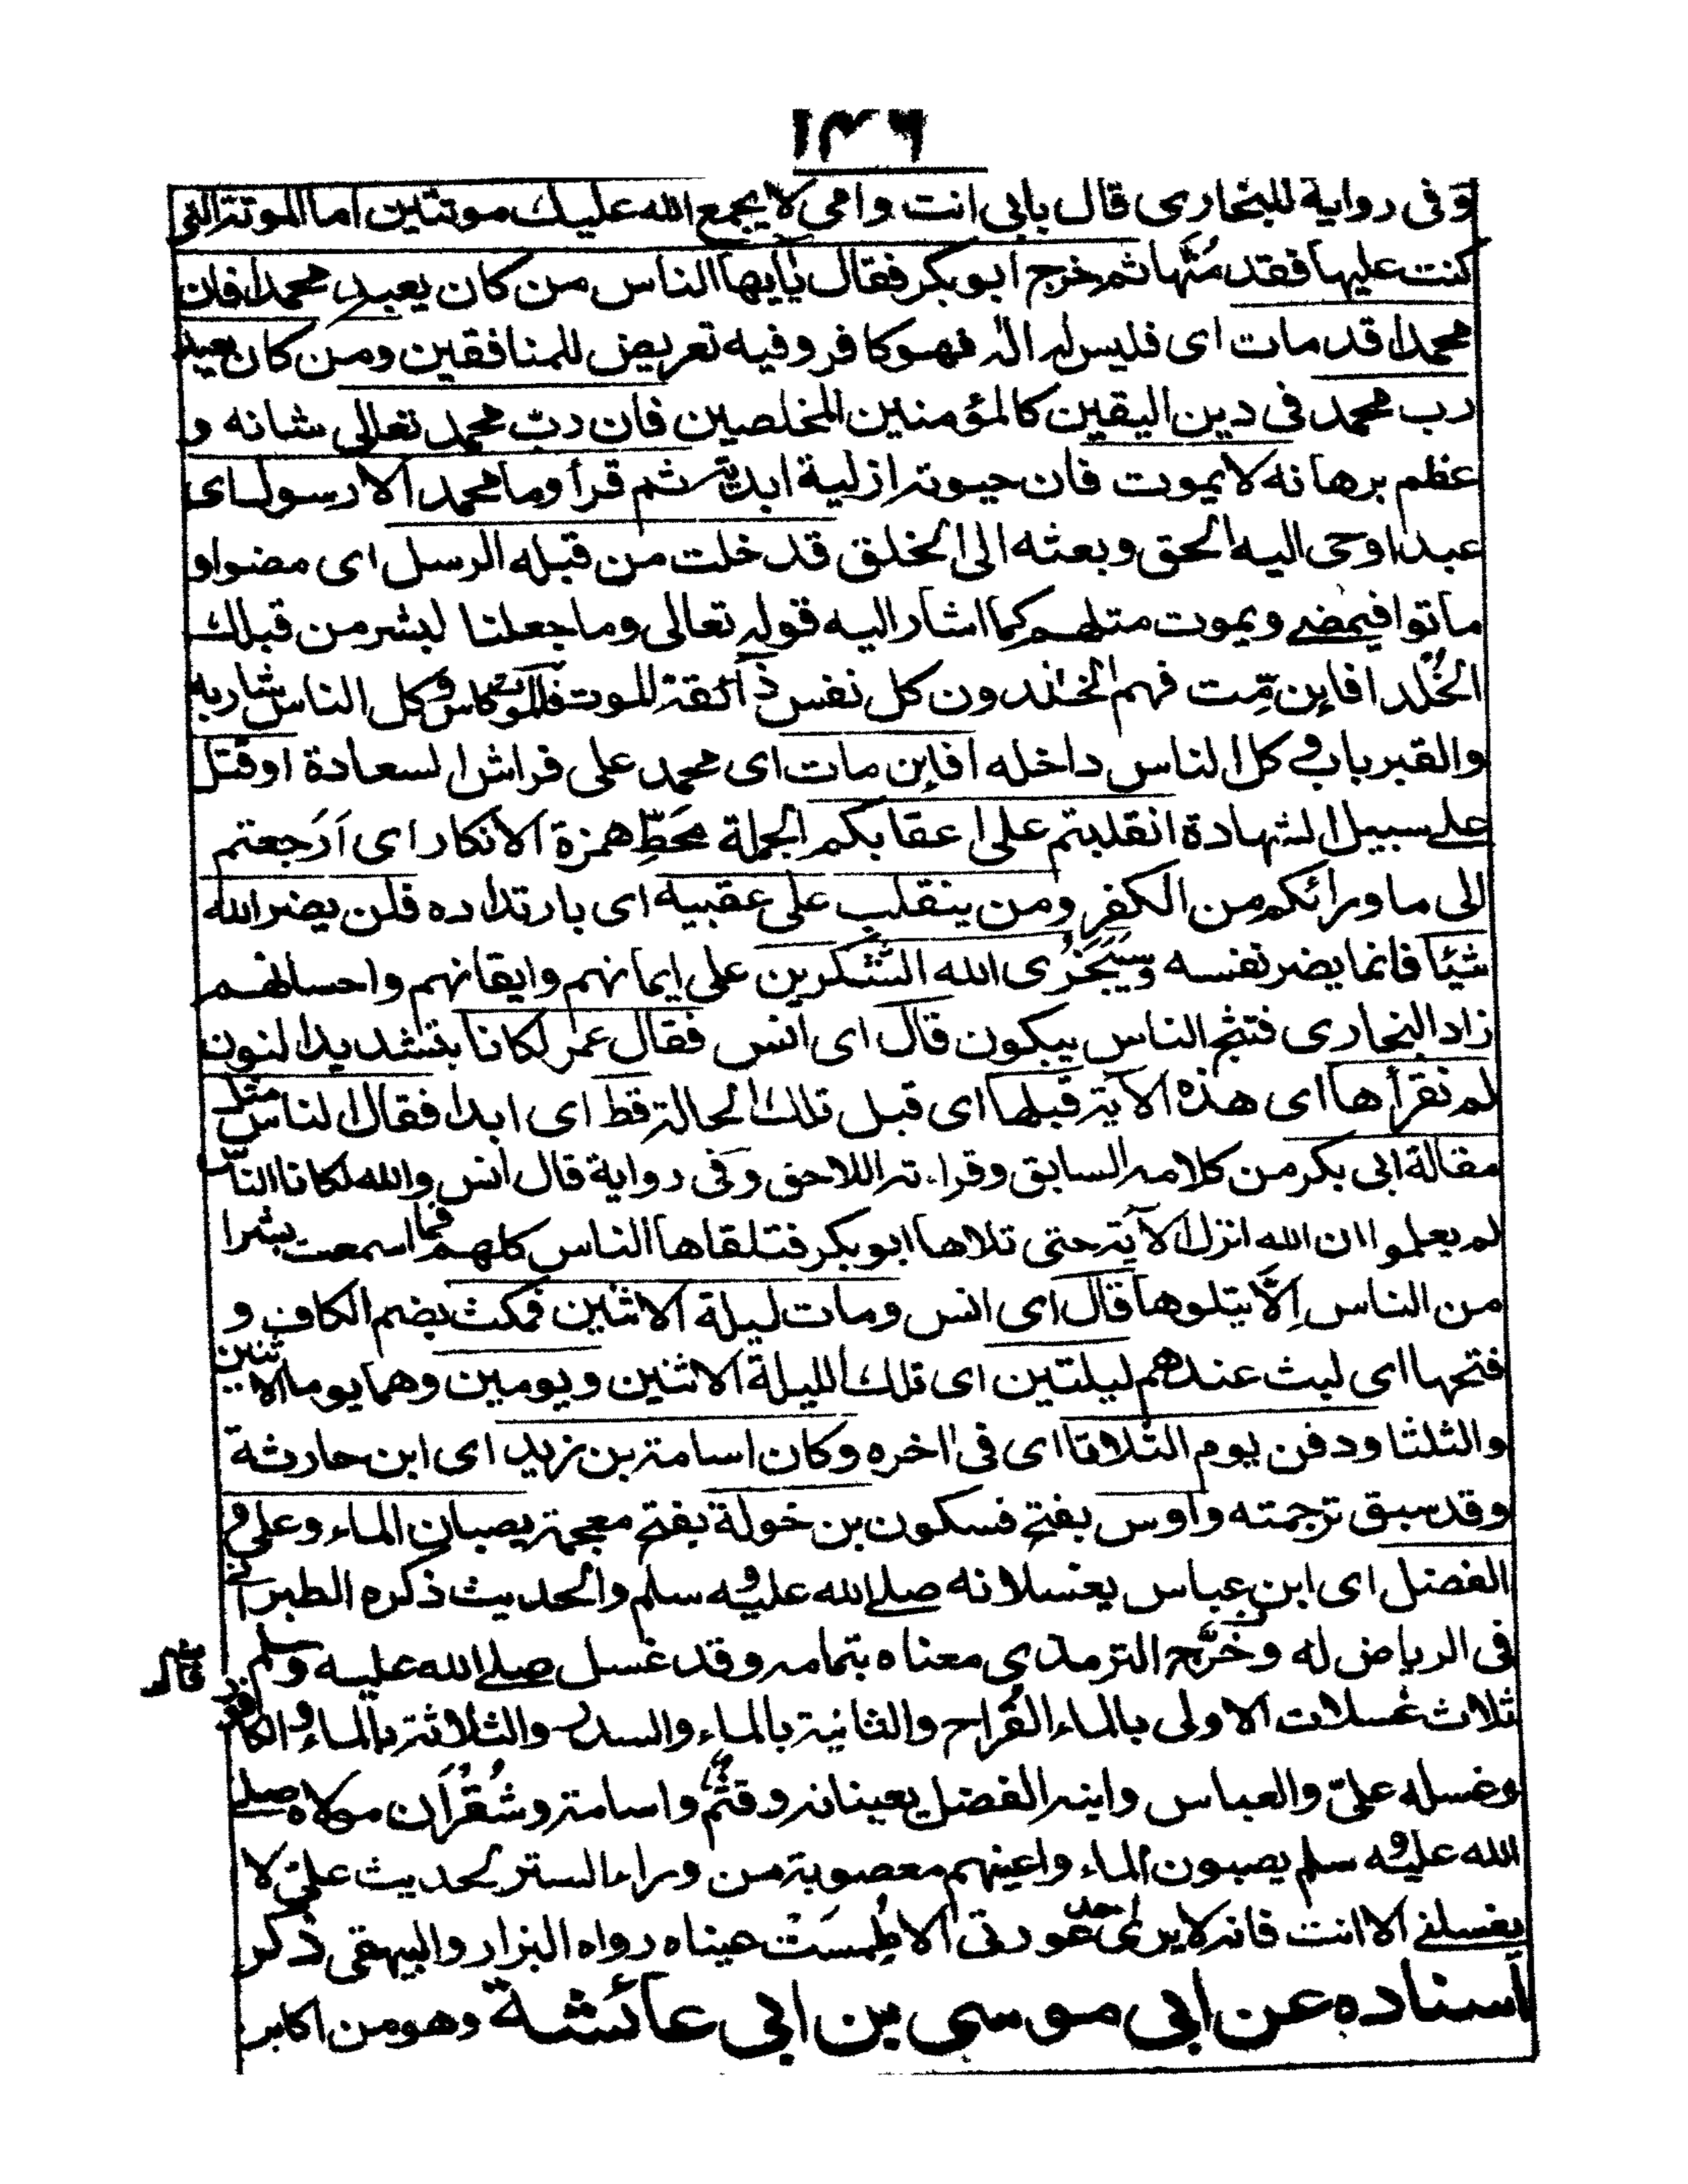 ١٤٦
وفى رواية للبخارى قال بابى انت وامى لا يجمع الله عليك موتتين اما الموتة التى
كنت عليها فقد مُتَّها ثم خرج ابو بكر فقال يٰايها الناس من كان يعبد محمدا فان
محمدا قد مات اى فليس له اله فهو كافر وفيه تعريض للمنافقين ومن كان يعبد
رب محمد فى دين اليقين كالمؤمنين المخلصين فان ربّ محمد تعالى شانه و
عظم برهانه لا يموت فان حيوته ازلية ابدية ثم قرأ وما محمد الا رسول اى
عبد اوحى اليه الحق وبعثه الى الخلق قد خلت من قبله الرسل اى مضوا و
ماتوا فيمضے ويموت مثلهم كما اشار اليه قوله تعالى وما جعلنا لبشر من قبلك
الخُلد افاين مِّت فهم الخٰلدون كل نفس ذآئقة الموت فالموت كاس وكل الناس شاربه
والقبر باب وكل الناس داخله افاين مات اى محمد على فراش السعادة او قتل
علے سبيل الشهادة انقلبتم على اعقابكم الجملة مَحَطِّ همزة الانكار اى اَرَجعتم
الى ما ورائكم من الكفر ومن ينقلب على عقبيه اى بارتداده فلن يضر الله
شيئا فانما يضر نفسه وَسَيَجْزِى الله الشٰكرين على ايمانهم وايقانهم واحسانهم
زاد البخارى فنشج الناس يبكون قال اى انس فقال عمر لكانا بتشديد النون
لم نقرأها اى هذه الاية قبلها اى قبل تلك الحالة قط اى ابدا فقال الناس مثل
مقالة ابى بكر من كلامه السابق وقراءته اللاحق وفى رواية قال انس والله لكانا الناس
لم يعلموا ان الله انزل الآية حتى تلاها ابو بكر فتلقاها الناس كلهم فما اسمعت بشرا
من الناس اِلَّا يتلوها قال اى انس ومات ليلة الاثنين فمكث بضم الكاف و
فتحها اى لبث عندهم ليلتين اى تلك الليلة الاثنين ويومين وهما يوما الاثنين
والثلثا ودفن يوم الثلاثا اى فى اخره وكان اسامة بن زيد اى ابن حارثة
وقد سبق ترجمته واوس بفتح فسكون بن خولة بفتح معجمة يصبان الماء وعلى و
الفضل اى ابن عباس يغسلانه صلے الله عليه وسلم والحديث ذكره الطبرانى
فى الرياض له وخَرَّج الترمذى معناه بتمامه وقد غسل صلے الله عليه وسلم
ثلاث غسلات الاولى بالماء القَراح والثانية بالماء والسدر والثلاثة بالماء والكافور
وغسله علىّ والعباس وابنه الفضل يعينانه وقثم واسامة وشُقُرَان مولاه صلے
الله عليه وسلم يصبون الماء واعينهم معصوبة من وراء الستر لحديث علىّ لا
يغسلنے الا انت فانه لا يرى احد عورتى الا طُمِسَتْ عيناه رواه البزار والبيهقى ذكر
اسناده عن ابى موسى بن ابى عائشة وهو من اكابر